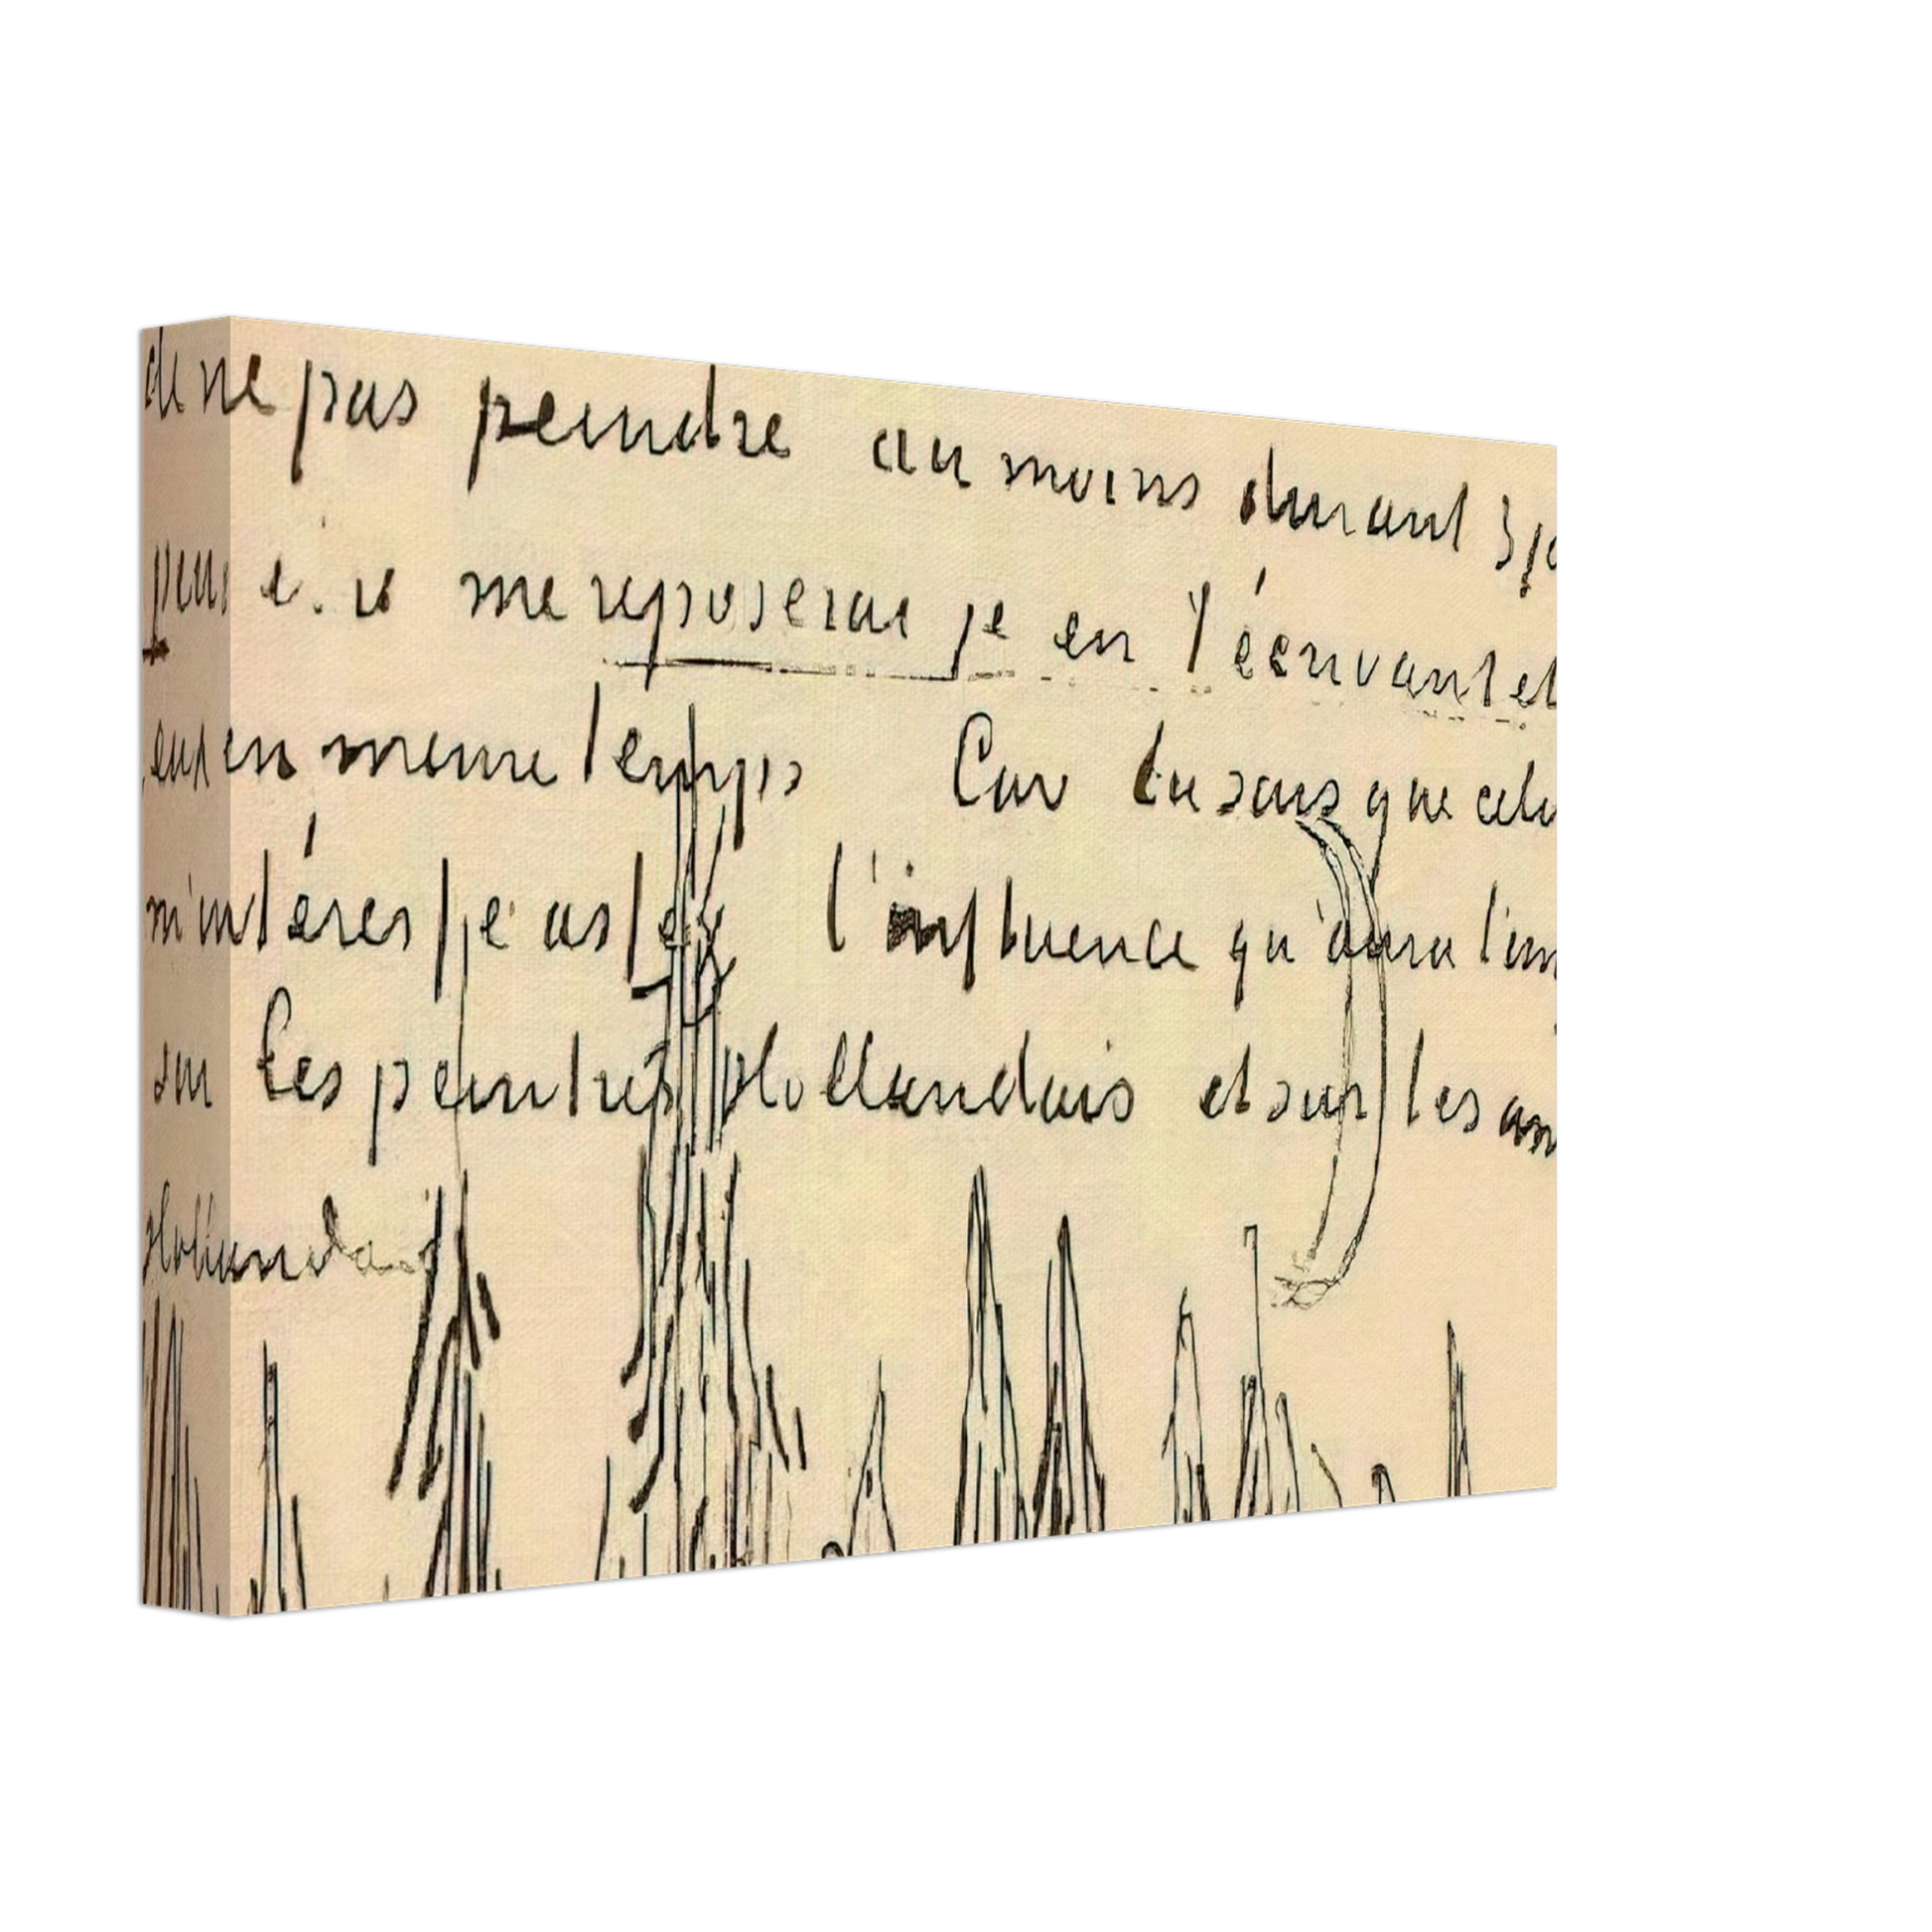 de ne pas peindre au moins durant 3 jo
peut me reposerai je en t'écrivant et
en même temps Car tu sais que cela
m'intéresse assez l'influence qu'aura l'im
sur les peintres Hollandais et sur les am
Hollandais